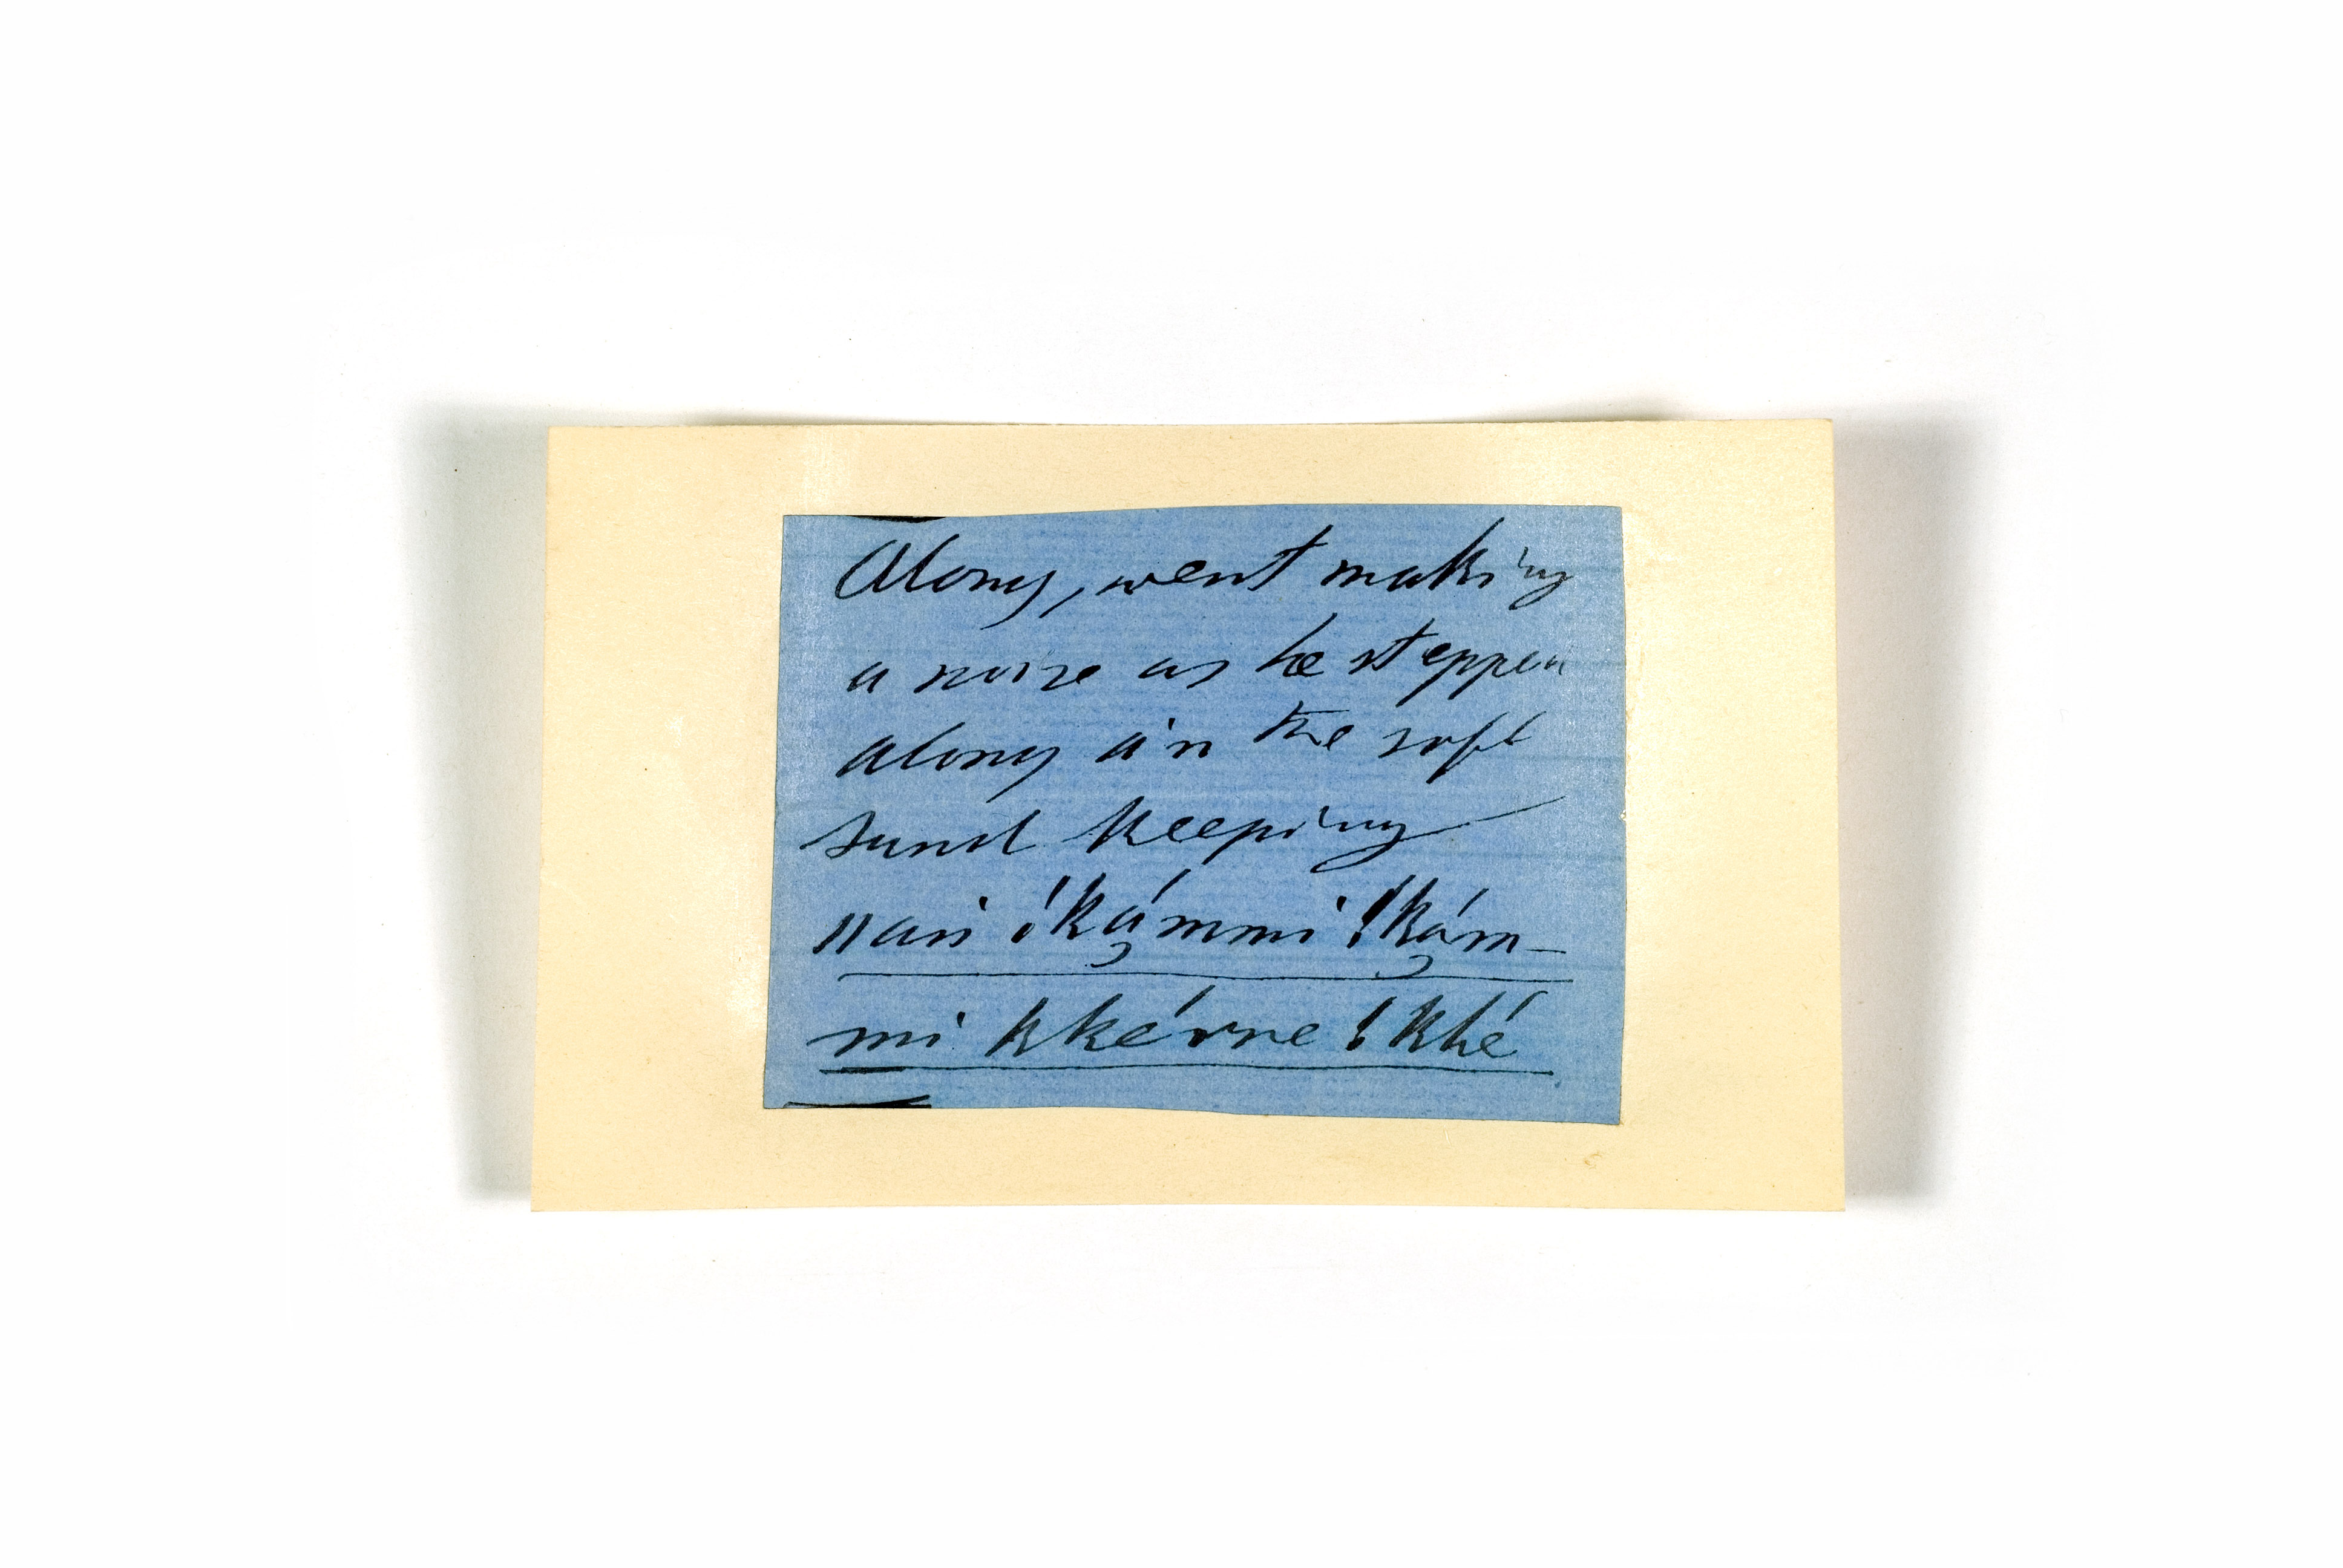 Along, went making
a noise as he stepped
along in the soft
sand keeping
ǁan !kạ́mmi !kạ́m-
mi kkérre !khé